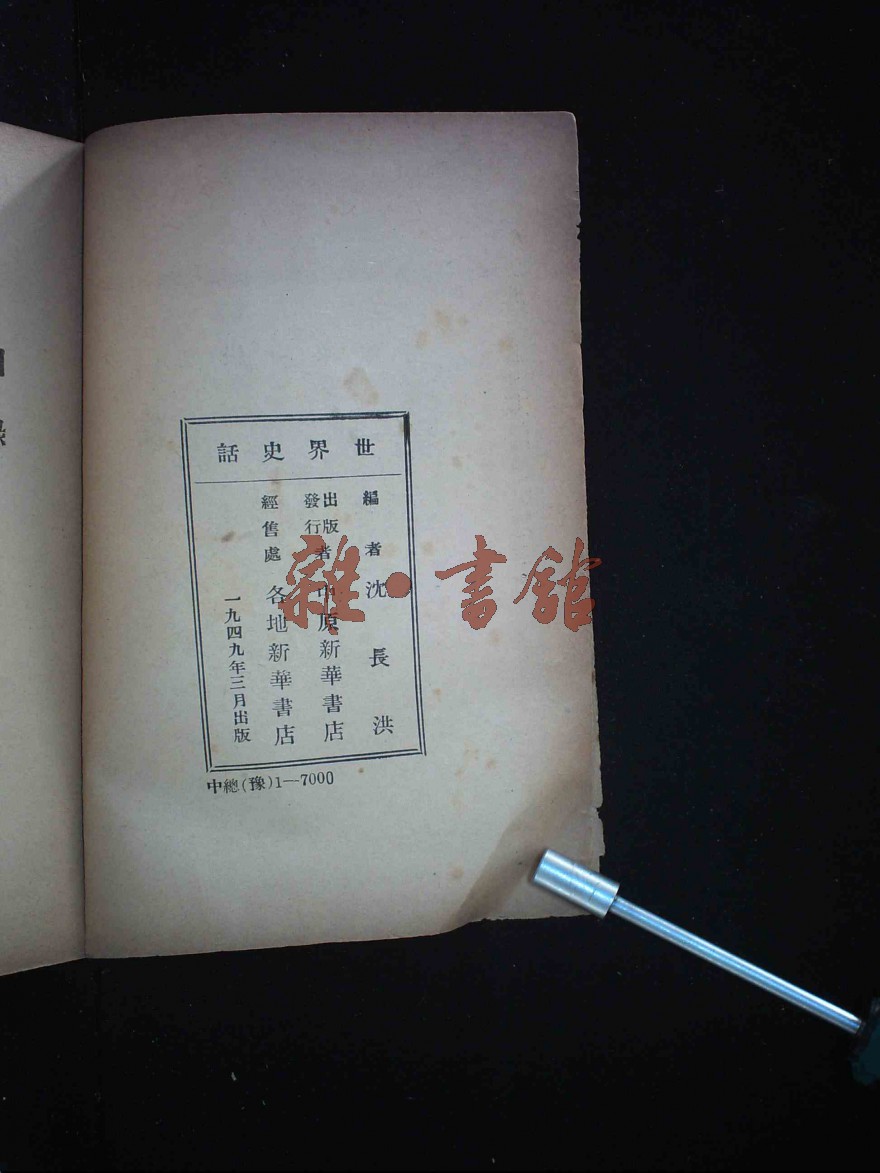 世界史話
編者 沈長洪
出版者 發行者 中原新華書店
經售處 各地新華書店
一九四九年三月出版
中總(豫)1—7000
雜·書館